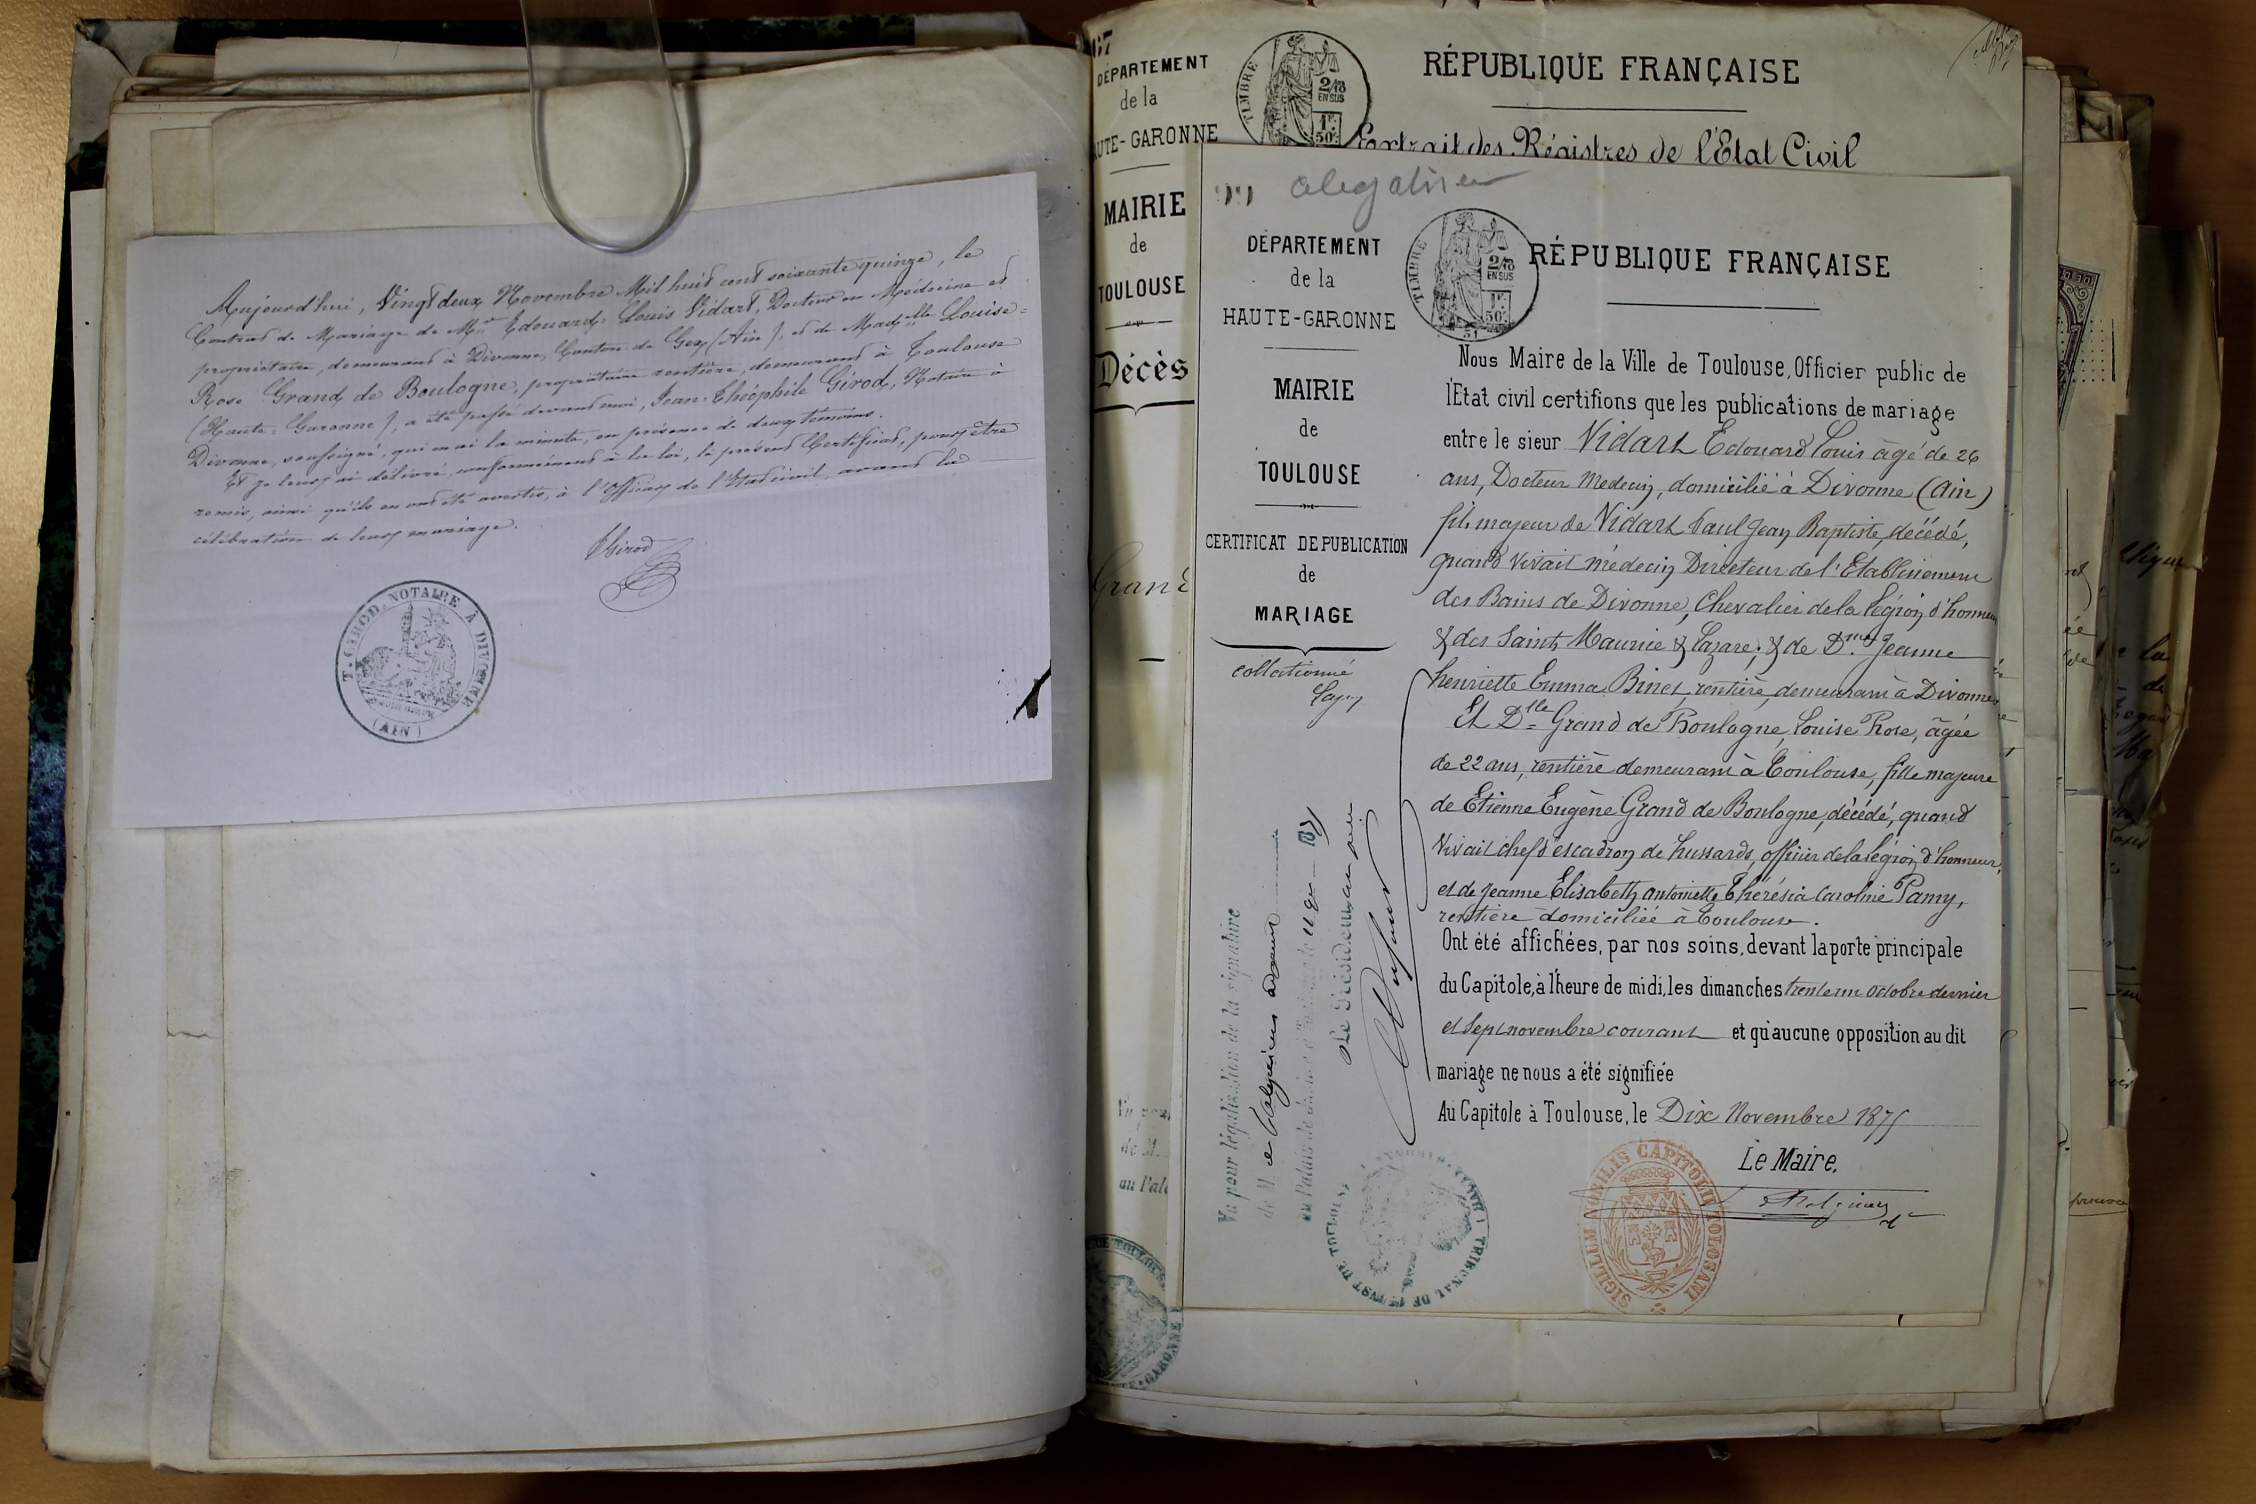 Aujourd'hui, Vingt deux Novembre Mil huit cent soixante quinze, le
Contrat de Mariage de Mr Edouard-Louis Vidart, Docteur en Médecine et
propriétaire, demeurant à Divonne, Canton de Gex (Ain), et de Madelle Louise-
Rose Grand de Boulogne, propriétaire rentière, demeurant à Toulouse
(Haute-Garonne), a été passé devant moi, Jean-Théophile Girod, Notaire à
Divonne, soussigné, qui en ai la minute, en présence de deux témoins.
Et je leur ai délivré, conformément à la loi, le présent Certificat, pour être
remis, ainsi qu'ils en ont été avertis, à l'Officier de l'Etat civil, avant la
célébration de leur mariage.
TGirod
T. GIROD, NOTAIRE À DIVONNE
(AIN)
67
DÉPARTEMENT
de la
HAUTE-GARONNE
MAIRIE
de
TOULOUSE
Décès
Grand
TIMBRE
2/10
EN SUS
1F.
50c
RÉPUBLIQUE FRANÇAISE
Extrait des Régistres de l'État Civil
99
DÉPARTEMENT
de la
HAUTE-GARONNE
MAIRIE
de
TOULOUSE
CERTIFICAT DE PUBLICATION
de
MARIAGE
collationné
TIMBRE
2/10
EN SUS
1F.
50c
51
RÉPUBLIQUE FRANÇAISE
Nous Maire de la Ville de Toulouse, Officier public de
l'Etat civil certifions que les publications de mariage
entre le sieur Vidart Edouard Louis âgé de 26
ans, Docteur Medecin, domicilié à Divonne (Ain)
fils majeur de Vidart Paul Jean Baptiste, décédé,
quand vivait médecin Directeur de l'Etablissement
des Bains de Divonne, Chevalier de la légion d'honneur
& des Saints Maurice & Lazare; & de Dme Jeanne
henriette Emma Binet, rentière, demeurant à Divonne
Et Dlle Grand de Boulogne, Louise Rose, âgée
de 22 ans, rentière demeurant à Toulouse, fille majeure
de Etienne Eugène Grand de Boulogne, décédé, quand
vivait chef d'escadron de hussards, officier de la légion d'honneur,
et de Jeanne Elisabeth antoinette Thérésia Caroline Pamy,
rentière domiciliée à Toulouse.
Ont été affichées, par nos soins, devant la porte principale
du Capitole, à l'heure de midi, les dimanches trente un octobre dernier
et sept novembre courant et qu'aucune opposition au dit
mariage ne nous a été signifiée
Au Capitole à Toulouse, le Dix Novembre 1875
Le Maire,
SIGILLUM CIVILIS CAPITOLII TOLOSANI
Vu pour légalisation de la signature
de M.
au Palais de
Le Président
TRIBUNAL DE 1re INST DE TOULOUSE